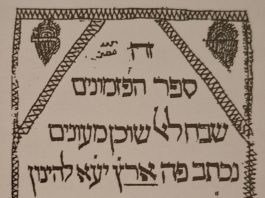 זה
ספר הפזמונים
שבח לאל שוכן מעונים
נכתב פה ארץ יע״א להינון